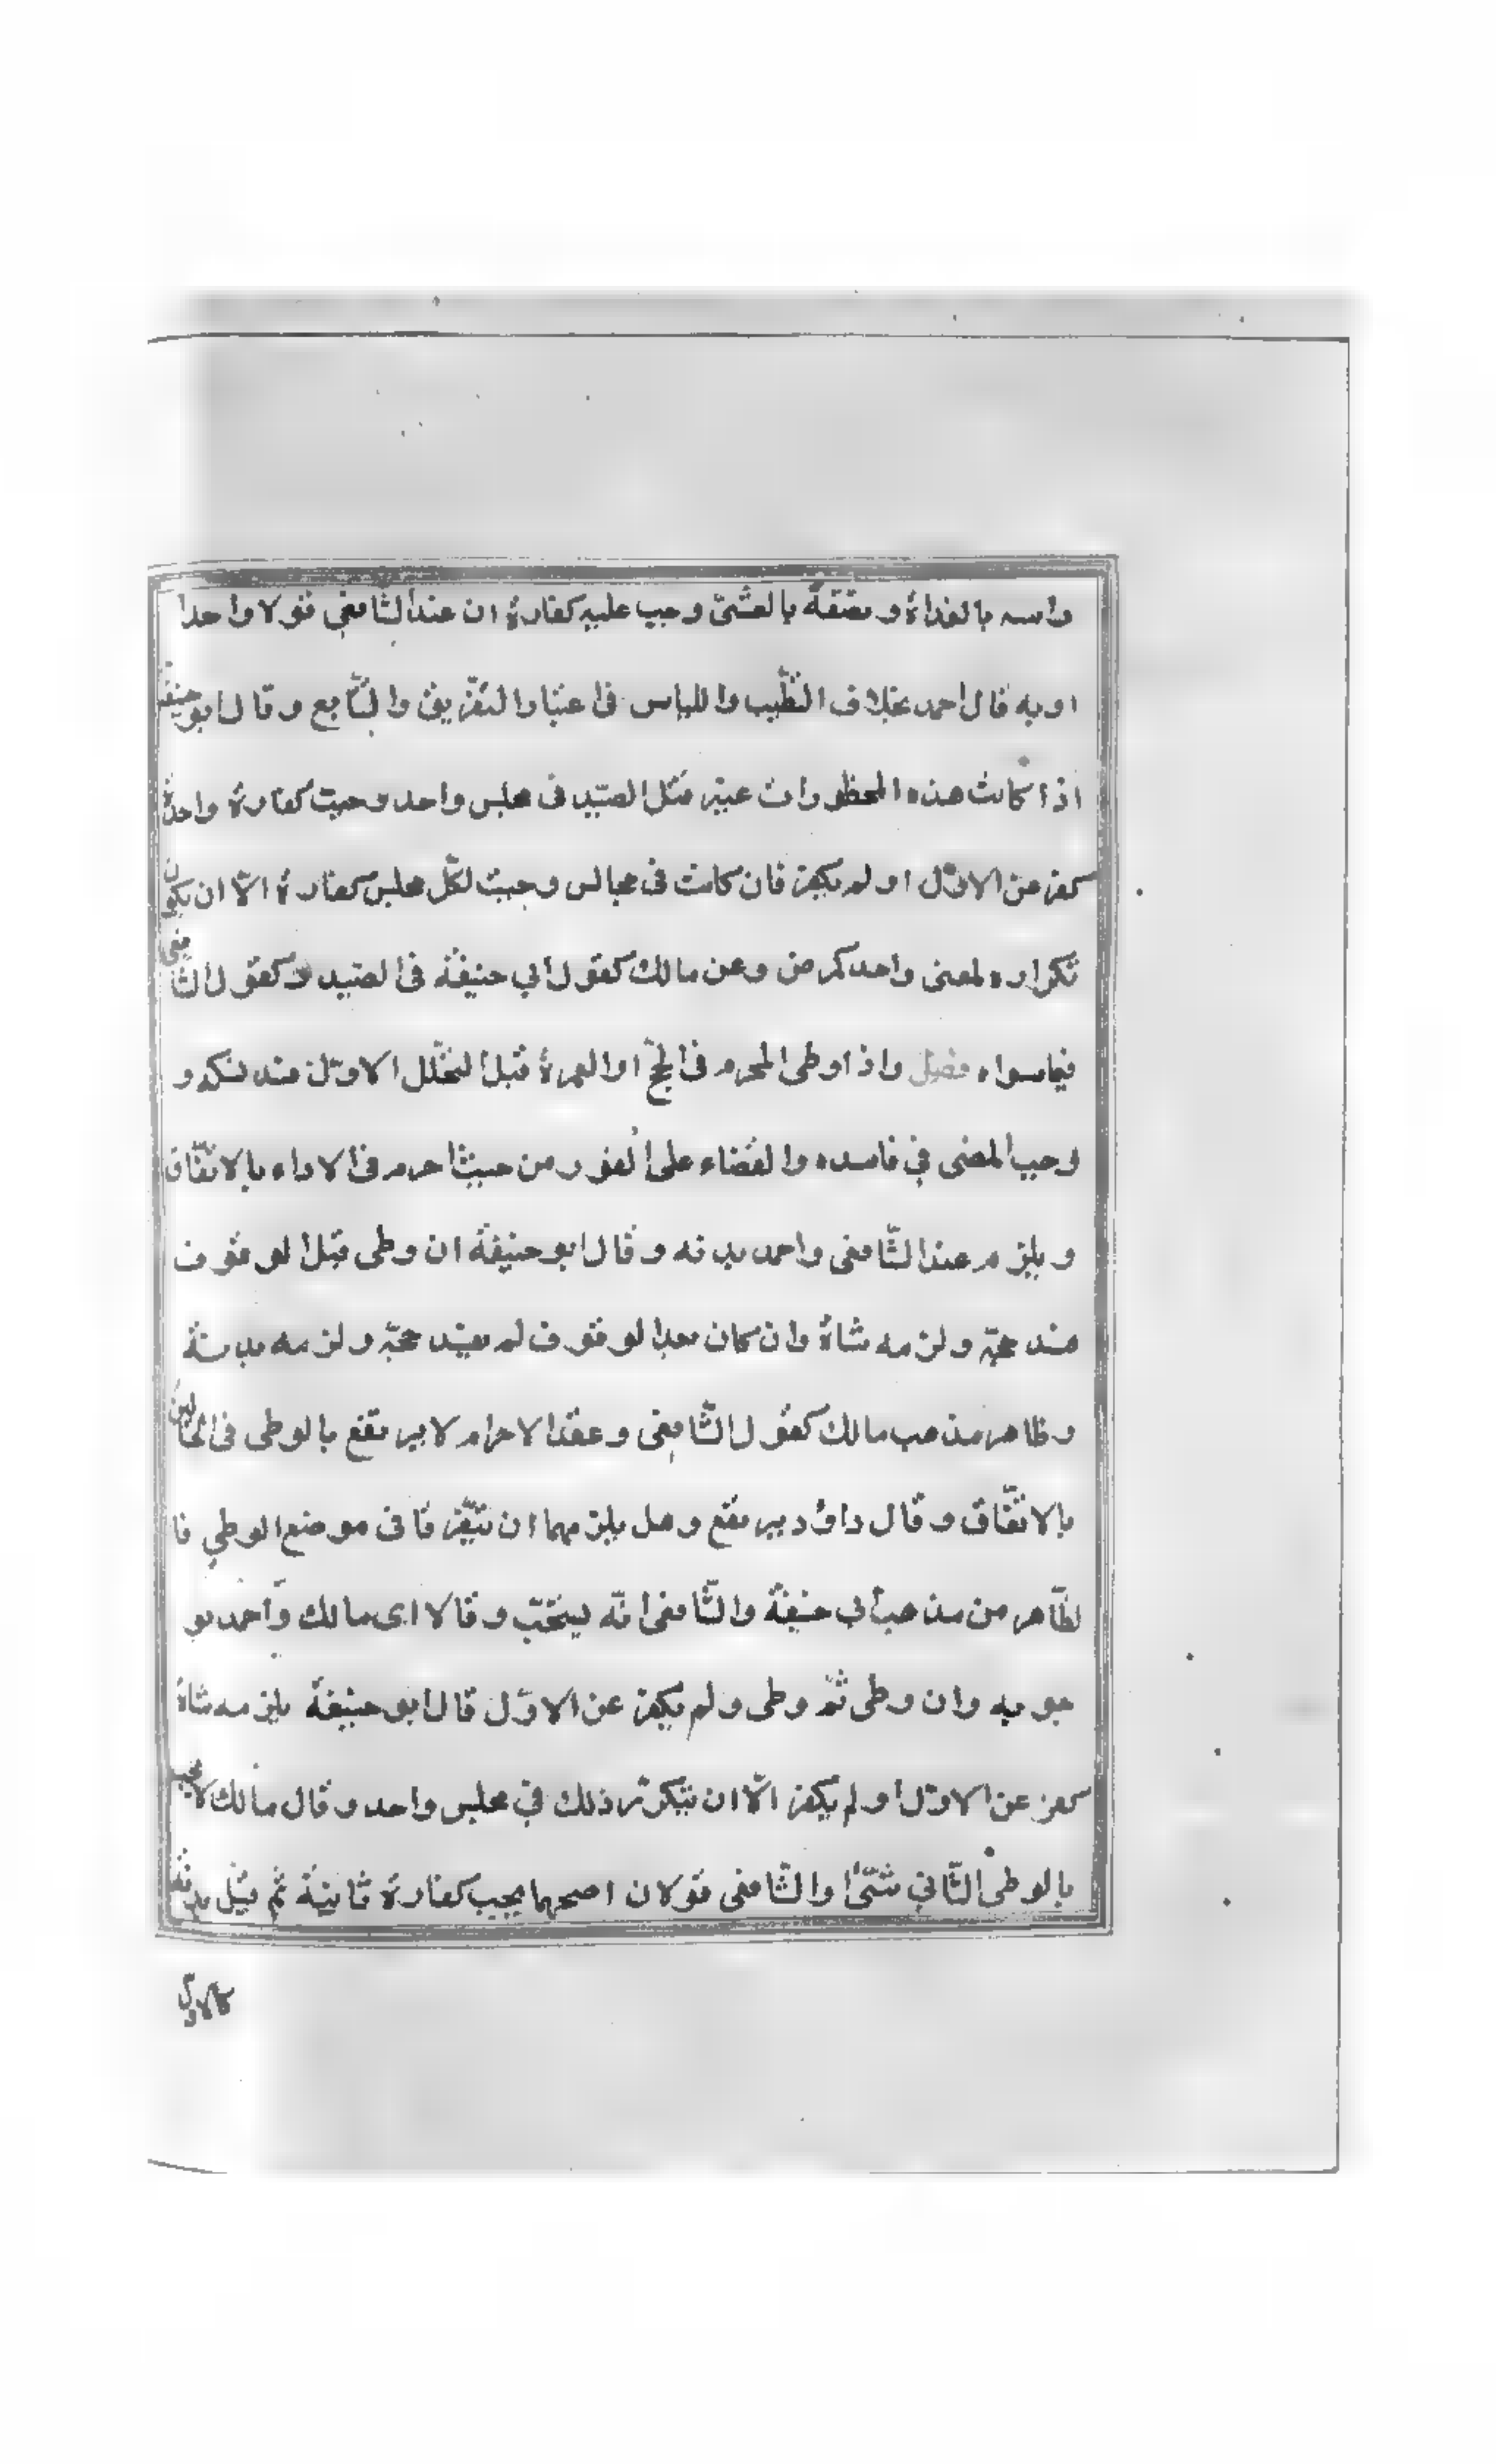 راسه بالغداة و نصفه بالعشىّ وجب عليه كفارة ان عند الشافعي قولا واحدا
او به قال احمد بخلاف التطّيب واللباس فى اعتبار التفّريق والتّتابع وقال ابو حنيفة
اذا كانت هذه المحظورات غير قتل الصّيد فى مجلس واحد وجبت كفارة واحدة
كفر عن الاوّل او لم يكفر فان كانت فى مجالس وجبت لكّل مجلس كفارة الاّ ان يكون
تكراره لمعنى واحد كمرض وعن مالك كقول ابي حنيفة فى الصّيد و كقول الشافعي
فيما سواه فصل واذا وطى المحرم فى الحّج او العمرة قبل التحلّل الاوّل فسد نسكه و
وجب المضى في فاسده والقضاء على الفور من حيث احرم فى الاداء بالاتفّاق
و يلزمه عند الشّافعى واحمد بدنه وقال ابو حنيفة ان وطى قبل الوقوف
فسد حجّه ولزمه شاة وان كان بعد الوقوف لم يفسد حجّه ولزمه بدنة
وظاهر مذهب مالك كقول الشّافعى وعقد الاحرام لا يرتفع بالوطى فى الحالين
بالاتفّاق وقال داؤد يرتفع وهل يلزمهما ان يتفّرقا فى موضع الوطي فا
لظّاهر من مذهب ابي حنيفة والشّافعى انّه يستحّب وقالا اى مالك واحمد بو
جوبه وان وطى ثم وطى ولم يكفر عن الاوّل قال ابو حنيفة يلزمه شاة
كفر عن الاوّل او لم يكفر الاّ ان يتكرّر ذلك في مجلس واحد وقال مالك لا يجب
بالوطى الثّاني شىّٔ والشّافعى قولان اصحهما يجب كفارة ثانية ثم قيل بدنة
كالاول